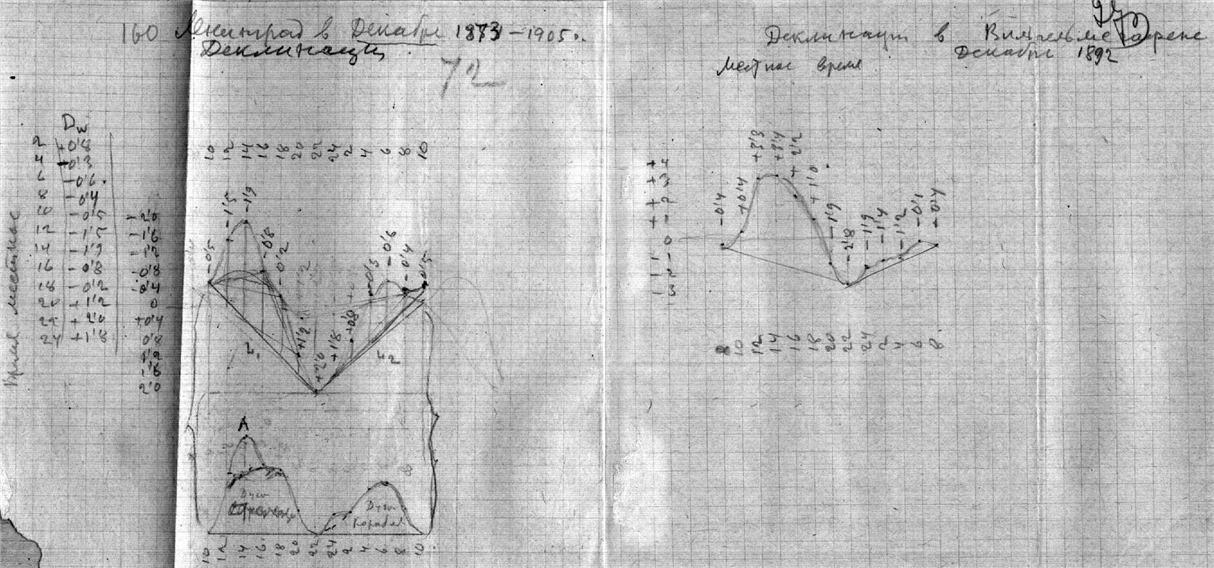 160 Ленинград в Декабре 1873–1905 г.
Деклинация
72
Деклинация в
Декабре 1892
Местное время
Время местное
Dw
2 +0'8
4 +0'3
6 -0'6
8 -0'4
10 -0'5
12 -1'5
14 -1'9
16 -0'8
18 -0'2
20 +1'2
22 +2'0
24 +1'8
-2'0
-1'6
-1'2
-0'8
-0'4
0
+0'4
0'8
1'2
1'6
2'0
10 12 14 16 18 20 22 24 2 4 6 8 10
-0'5 -1'5 -1'9 -0'8 -0'2 +1'2 +2'0 +1'8 +0'8 -0'3 -0'6 -0'4 -0'5
L1 L2
A
Дуга
Дуга
10 12 14 16 18 20 22 24 2 4 6 8 10
-0'4 +0'4 +3'3 +3'4 +2'2 +1'0 -1'9 -2'8 -1'9 -1'4 -1'2 -0'1 -0'4
8 10 12 14 16 18 20 22 24 2 4 6 8